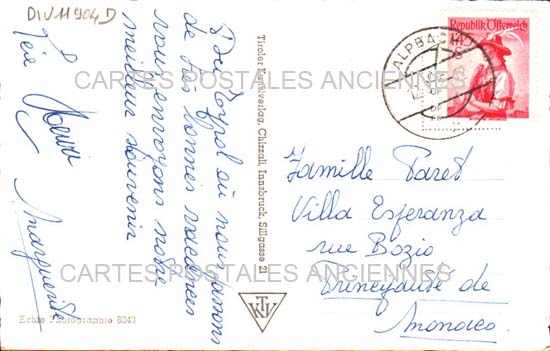 DIV11904D
Du Tyrol où nous passons
de très bonnes vacances
nous envoyons notre
meilleur souvenir
Marguerite
Tiroler Kunstverlag, Chizzali, Innsbruck, Sillgasse 21
Echte Photographie 8040
KTV
ALPBACH
Republik Österreich
Famille Paret
Villa Esperanza
rue Bozio
Principauté de
Monaco
CARTES POSTALES ANCIENNES
CARTES POSTALES ANCIENNES